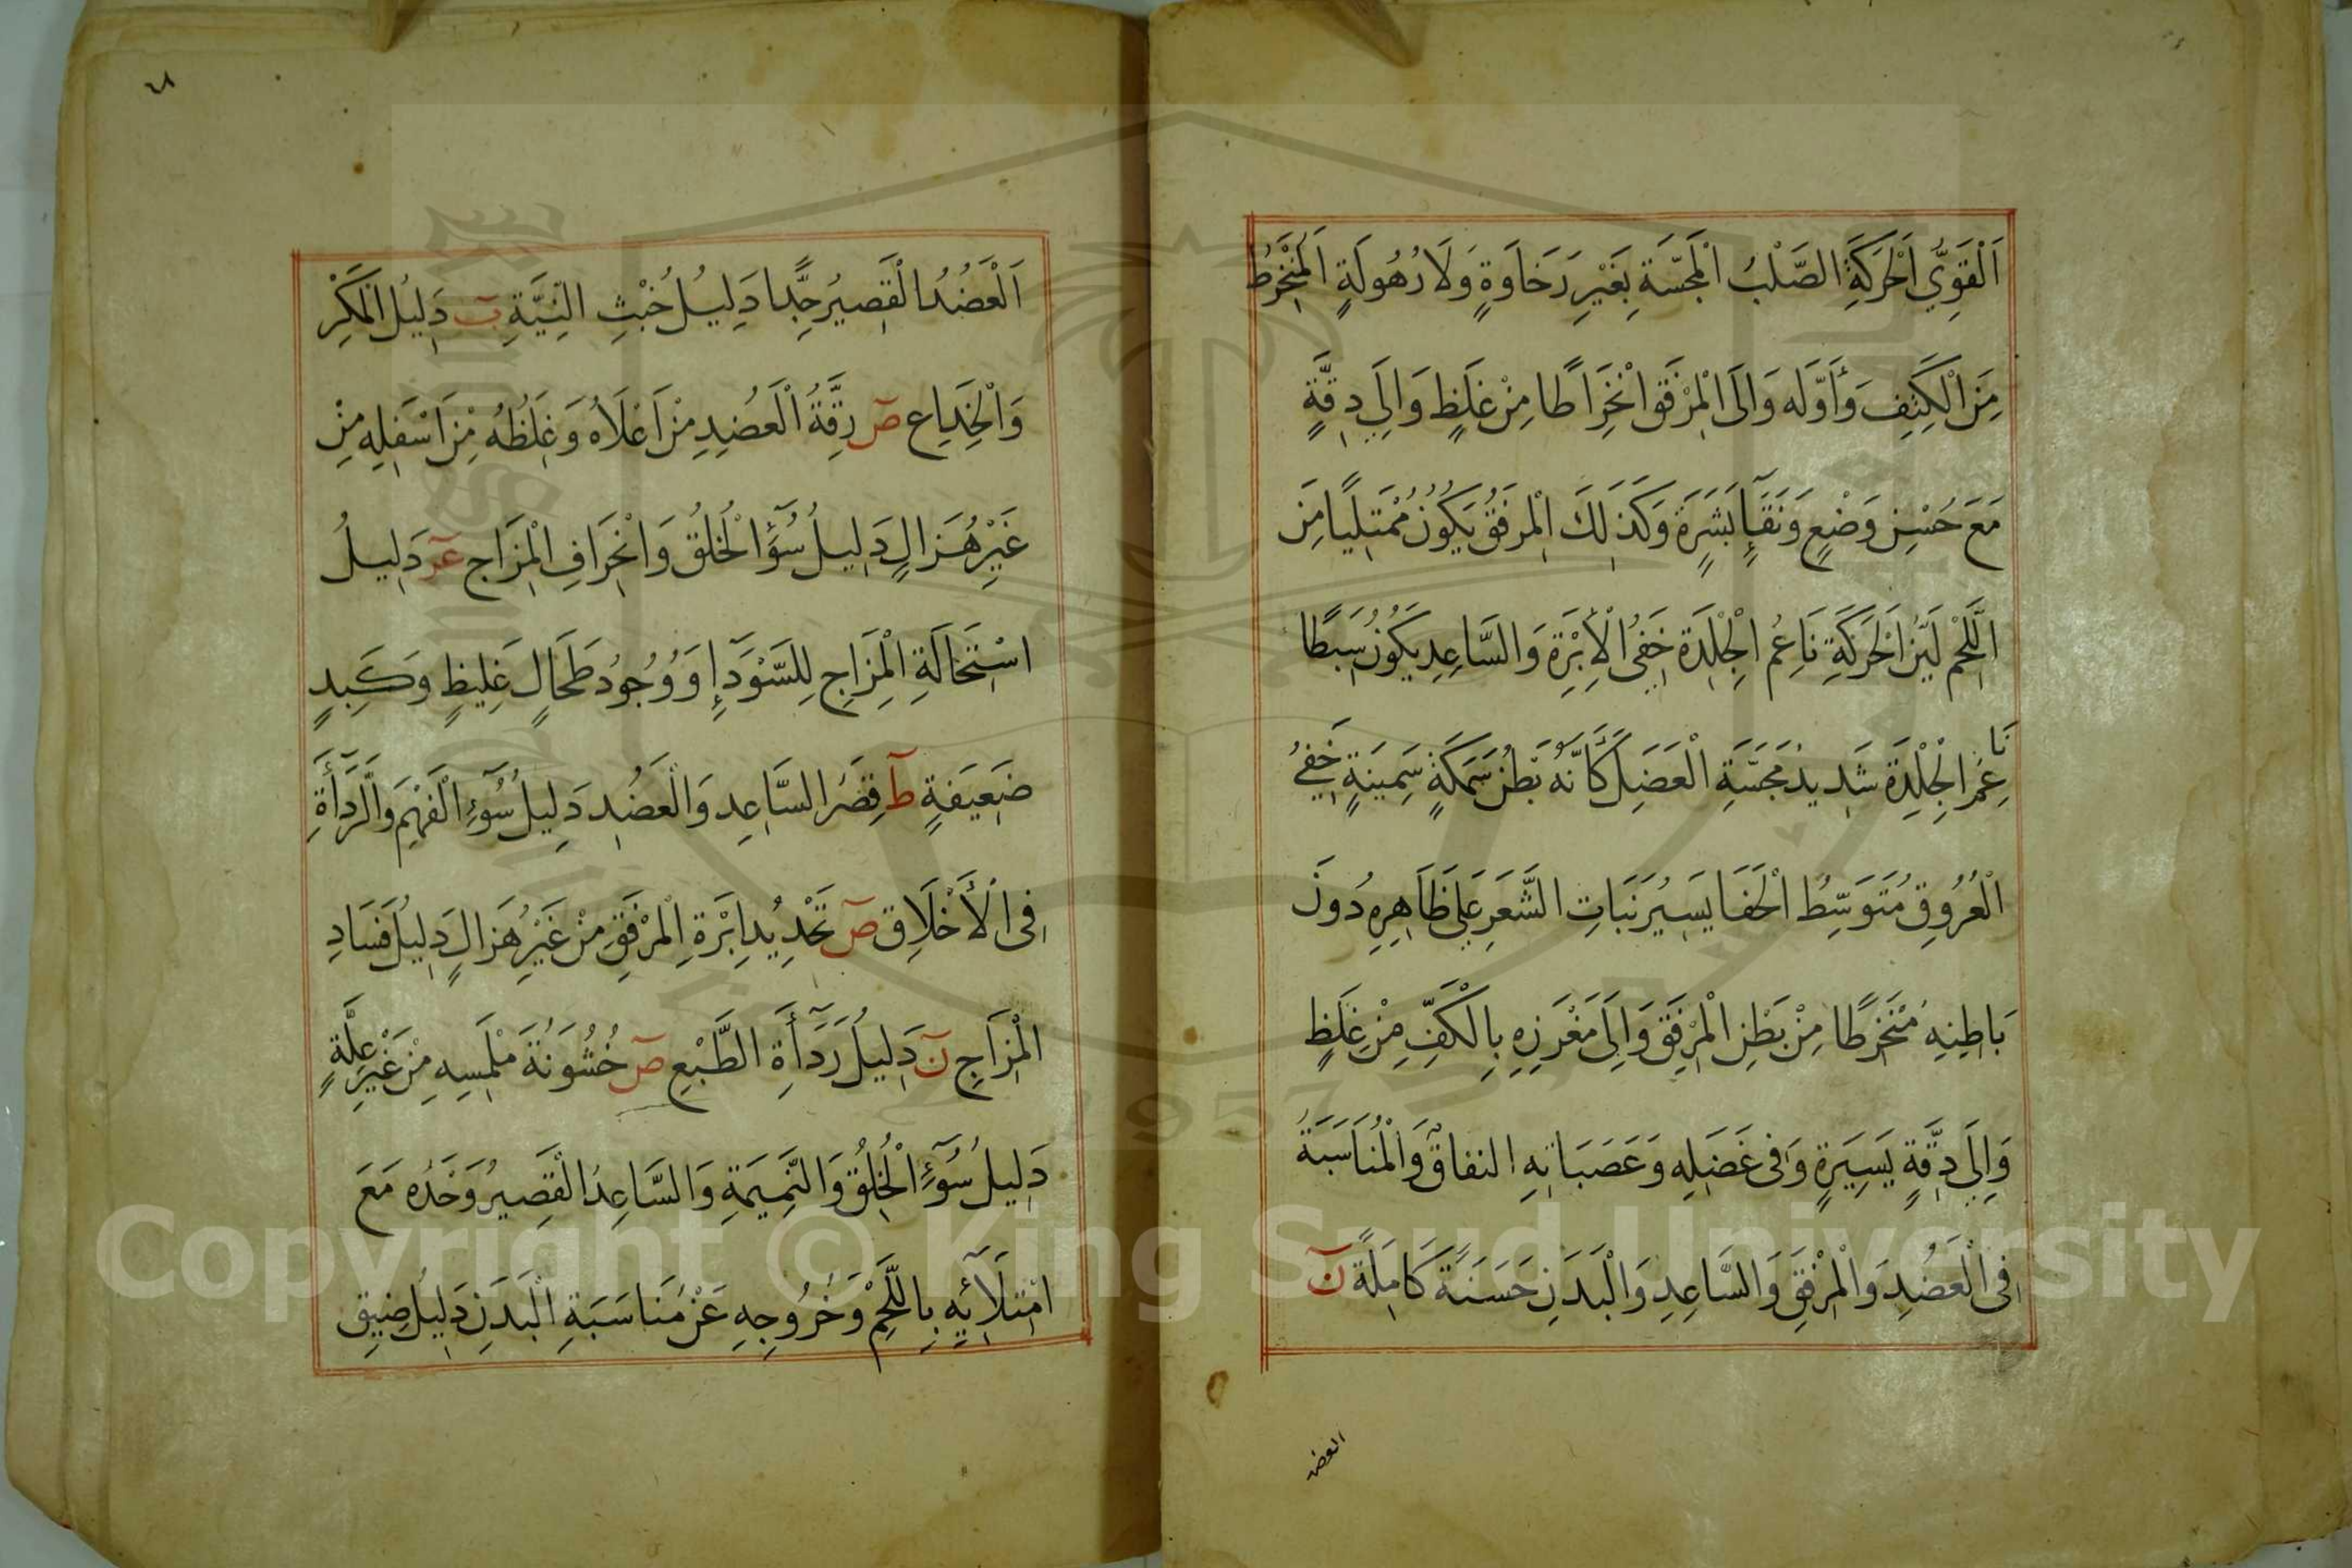 اَلْقَوِيُّ الْحَرَكَةِ الصَّلْبُ الْمَجَسَّةِ بِغَيْرِ رَخَاوَةٍ وَلَا رُهُولَةٍ الْمُنْخَرِطُ
مِنَ الْكَتِفِ وَأَوَّلَه وَالَى الْمِرْفَقِ انْخِرَاطًا مِنْ غِلَظٍ وَالِي دِقَّةٍ
مَعَ حُسْنِ وَضْعٍ وَنَقَآءِ بَشَرَةٍ وَكَذَلِكَ الْمِرْفَقُ يَكُونُ مُمْتَلِيًا مِنَ
اللَّحْمِ لَيِّنَ الْحَرَكَةِ نَاعِمُ الْجِلْدَةِ خَفِىُ الْأِبْرَةِ وَالسَّاعِدِ يَكُونُ سَبِطًا
نَاعِمَ الْجِلْدَةِ شَدِيدُ مَجَسَّةِ الْعَضَلِ كَأَنَّهُ بَطْنُ سَمَكَةٍ سَمِينَةٍ خَفِيُّ
الْعُرُوقِ مُتَوَسِّطُ الْخَفَا يَسِيرُ نَبَاتِ الشَّعَرِ عَلَى ظَاهِرِهِ دُونَ
بَاطِنِهِ مُنْخَرِطًا مِنْ بَطْنِ الْمِرْفَقِ وَالِىَ مَغْرَزِهِ بِالْكَفِّ مِنْ غِلَظٍ
وَالِىَ دِقَّةٍ يَسِيرَةٍ وَفى عَضَلِهِ وَعَصَبَاتِهِ النفاقُ وَالْمُنَاسَبَةُ
فِى الْعَضُدِ وَالْمِرْفَقِ وَالسَّاعِدِ وَالْبَدَنِ حَسَنَةً كَامِلَةً نَ
العضد
٤٨
اَلْعَضُدُ الْقَصِيرُ جِدًّا دَلِيلُ خُبْثِ النِّيَّةِ ب دَلِيلُ الْمَكْرِ
وَالْخِدَاعِ ص رِقَّةُ الْعَضُدِ مِنْ اَعْلَاهُ وَغِلَظُهُ مِنْ اَسْفَلِهِ مِنْ
غَيْرِ هُزَالٍ دَلِيلُ سُوٓءِ الْخُلُقِ وَانْحِرَافِ الْمِزَاجِ عر دَلِيلُ
اسْتِحَالَةِ الْمِزَاجِ لِلسَّوْدَآءِ وَوُجُودُ طَحَالٍ غَلِيظٍ وَكَبِدٍ
ضَعِيفَةٍ ط قِصَرُ السَّاعِدِ وَالْعَضُدِ دَلِيلُ سُوٓءِ الْفَهْمِ وَالرَّدَأَةِ
فِى الْأَخْلَاقِ ص تَحْدِيدُ اِبْرَةِ الْمِرْفَقِ مِنْ غَيْرِ هُزَالٍ دَلِيلُ فَسَادِ
الْمِزَاجِ ن دَلِيلُ رَدَآأَةِ الطَّبْعِ ص خُشُونَةُ مَلْمَسِهِ مِنْ غَيْرِ عِلَّةٍ
دَلِيلُ سُوٓءِ الْخُلُقِ وَالنَّمِيمَةِ وَالسَّاعِدُ الْقَصِيرُ وَحْدَهُ مَعَ
امْتِلَآئِهِ بِاللَّحْمِ وَخُرُوجِهِ عَنْ مُنَاسَبَةِ الْبَدَنِ دَلِيلُ ضِيقِ
Copyright © King Saud University
1957